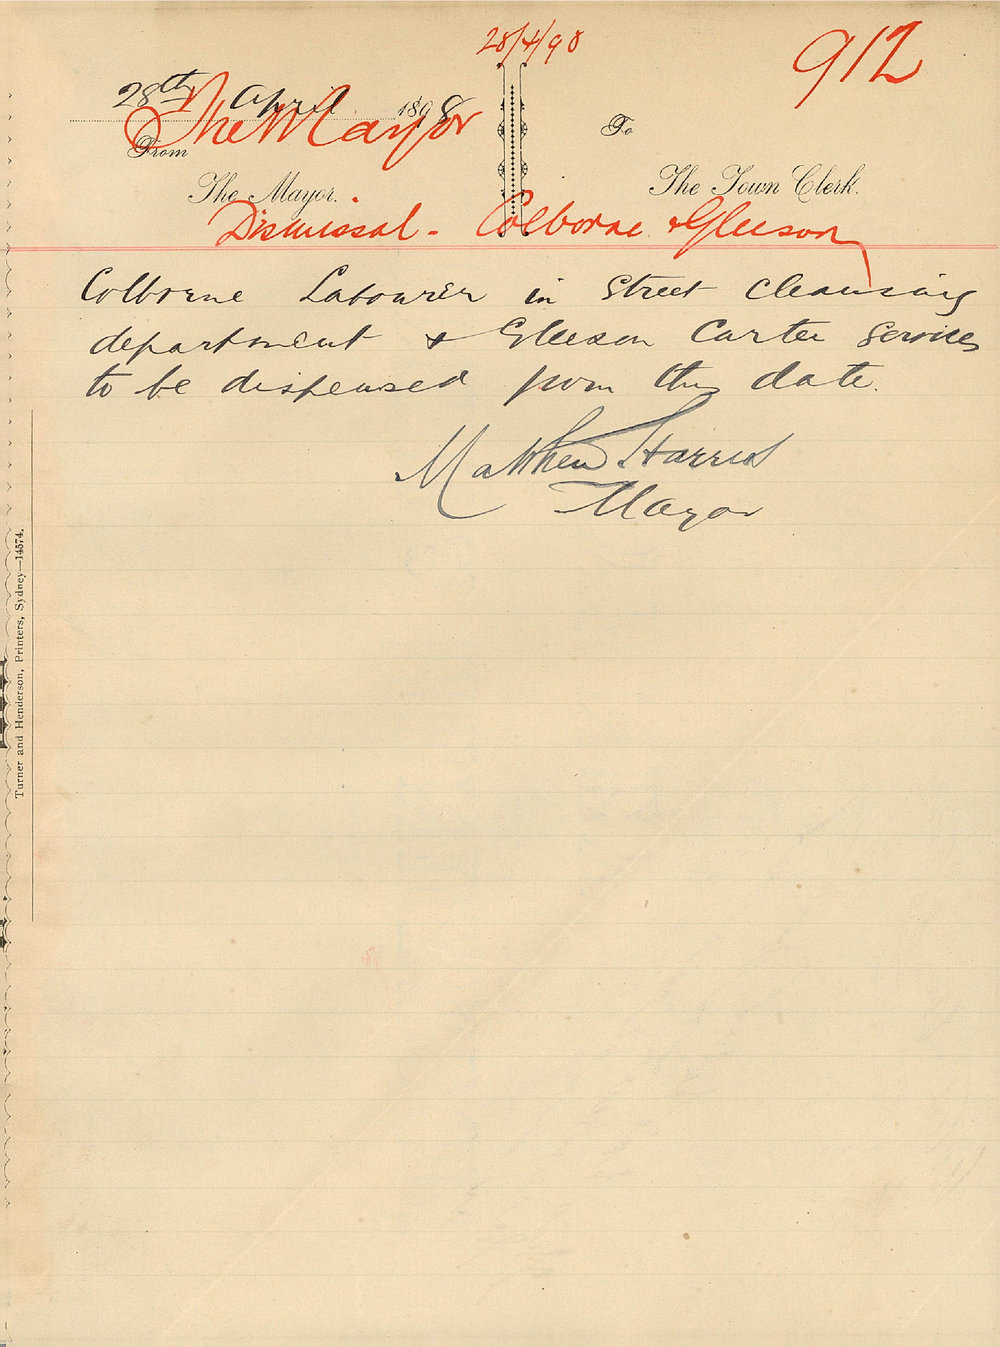 28/4/98
912
28th April 1898
The Mayor
From
To
The Mayor.
The Town Clerk.
Dismissal - Colborne & Gleeson
Colborne Labourer in Street Cleansing
department & Gleeson Carter Services
to be dispensed from this date.
Matthew Harris
Mayor
Turner and Henderson, Printers, Sydney—14574.